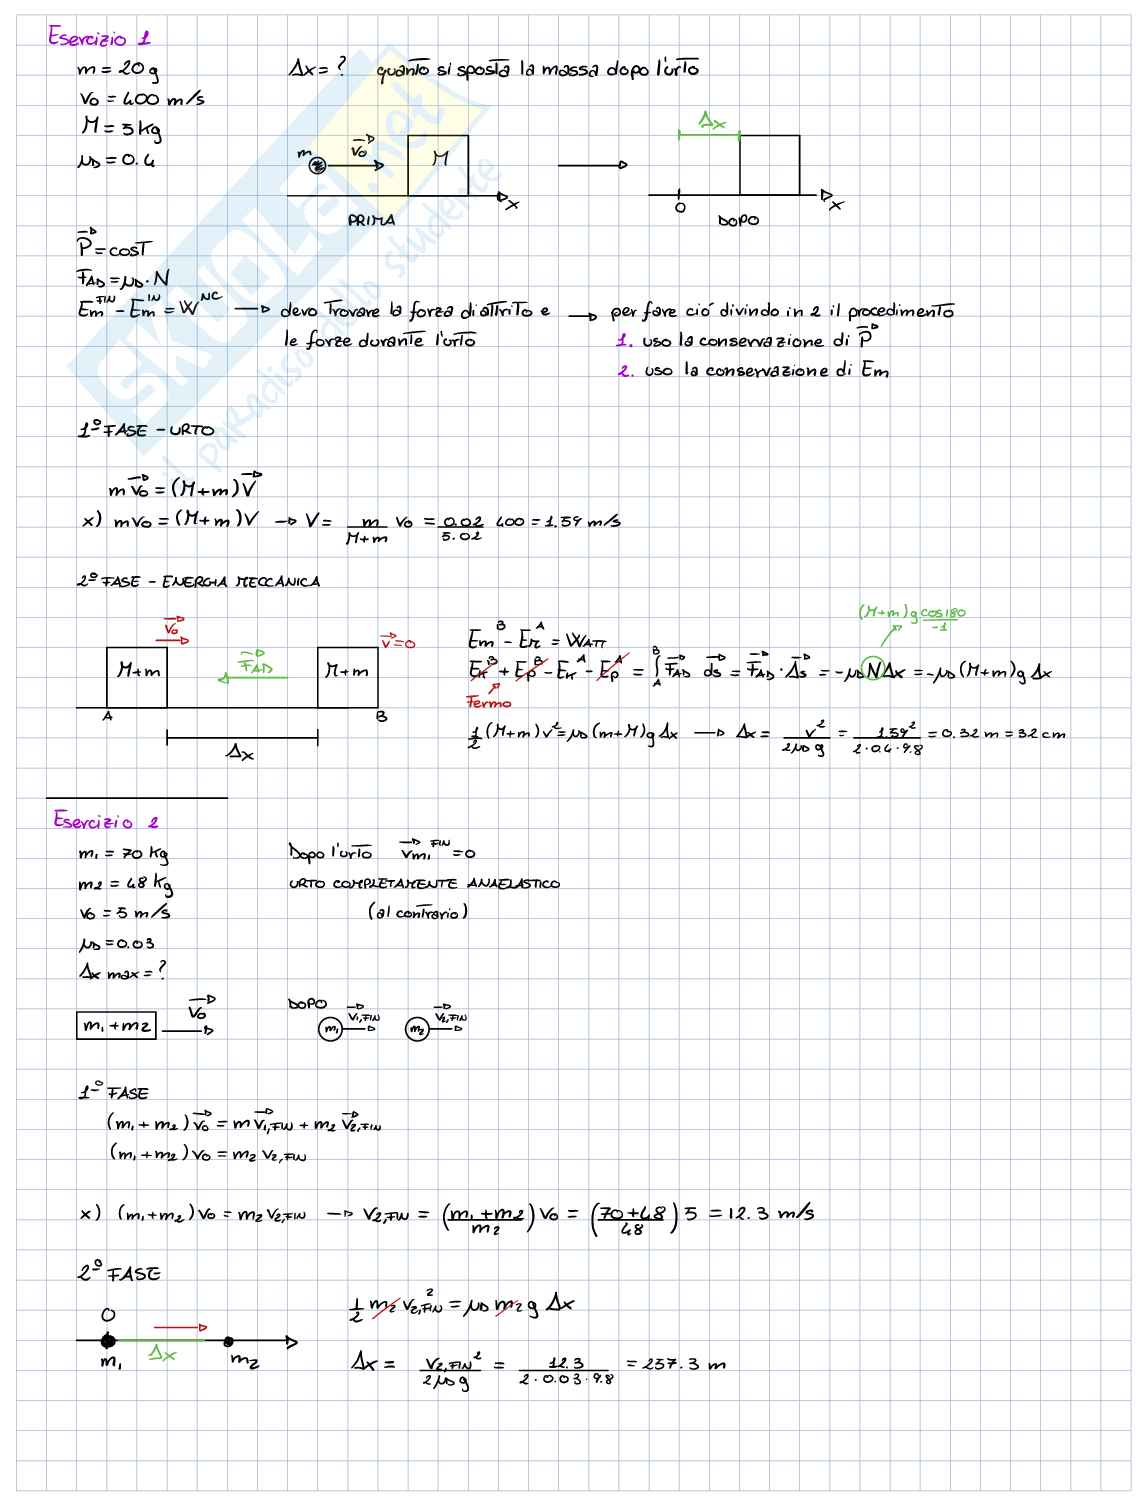 Esercizio 1
m = 20 g
v₀ = 400 m/s
M = 5 kg
μD = 0.4
Δx = ? quanto si sposta la massa dopo l'urto
m v₀ M x
PRIMA
Δx
0 x
DOPO
P = cost
FAD = μD · N
Em^FIN - Em^IN = W^NC → devo trovare la forza di attrito e → per fare ciò divindo in 2 il procedimento
le forze durante l'urto
1. uso la conservazione di P
2. uso la conservazione di Em
SKUOLA.net
il paradiso dello studente
1° FASE - URTO
m v₀ = (M+m) V
x) mv₀ = (M+m) V → V = m/(M+m) v₀ = 0.02/5.02 400 = 1.59 m/s
2° FASE - ENERGIA MECCANICA
v₀ v=0
M+m FAD M+m
A B
Δx
(M+m) g cos180
-1
Em^B - Em^A = WATT
Ek^B + Ep^B - Ek^A - Ep^A = ∫_A^B FAD ds = FAD · Δs = -μD N Δx = -μD (M+m) g Δx
Fermo
1/2 (M+m) v² = μD (m+M) g Δx → Δx = v²/(2μD g) = 1.59²/(2·0.4·9.8) = 0.32 m = 32 cm
Esercizio 2
m₁ = 70 kg
m₂ = 48 kg
v₀ = 5 m/s
μD = 0.03
Δx max = ?
Dopo l'urto vm₁^FIN = 0
URTO COMPLETAMENTE ANAELASTICO
(al contrario)
m₁ + m₂ v₀
DOPO
m₁ v1,FIN m₂ v2,FIN
1° FASE
(m₁ + m₂) v₀ = m v1,FIN + m₂ v2,FIN
(m₁ + m₂) v₀ = m₂ v2,FIN
x) (m₁ + m₂) v₀ = m₂ v2,FIN → v2,FIN = ((m₁ + m₂)/m₂) v₀ = ((70+48)/48) 5 = 12.3 m/s
2° FASE
0
Δx
m₁ m₂
1/2 m₂ v2,FIN² = μD m₂ g Δx
Δx = v2,FIN²/(2μD g) = 12.3/(2·0.03·9.8) = 257.3 m